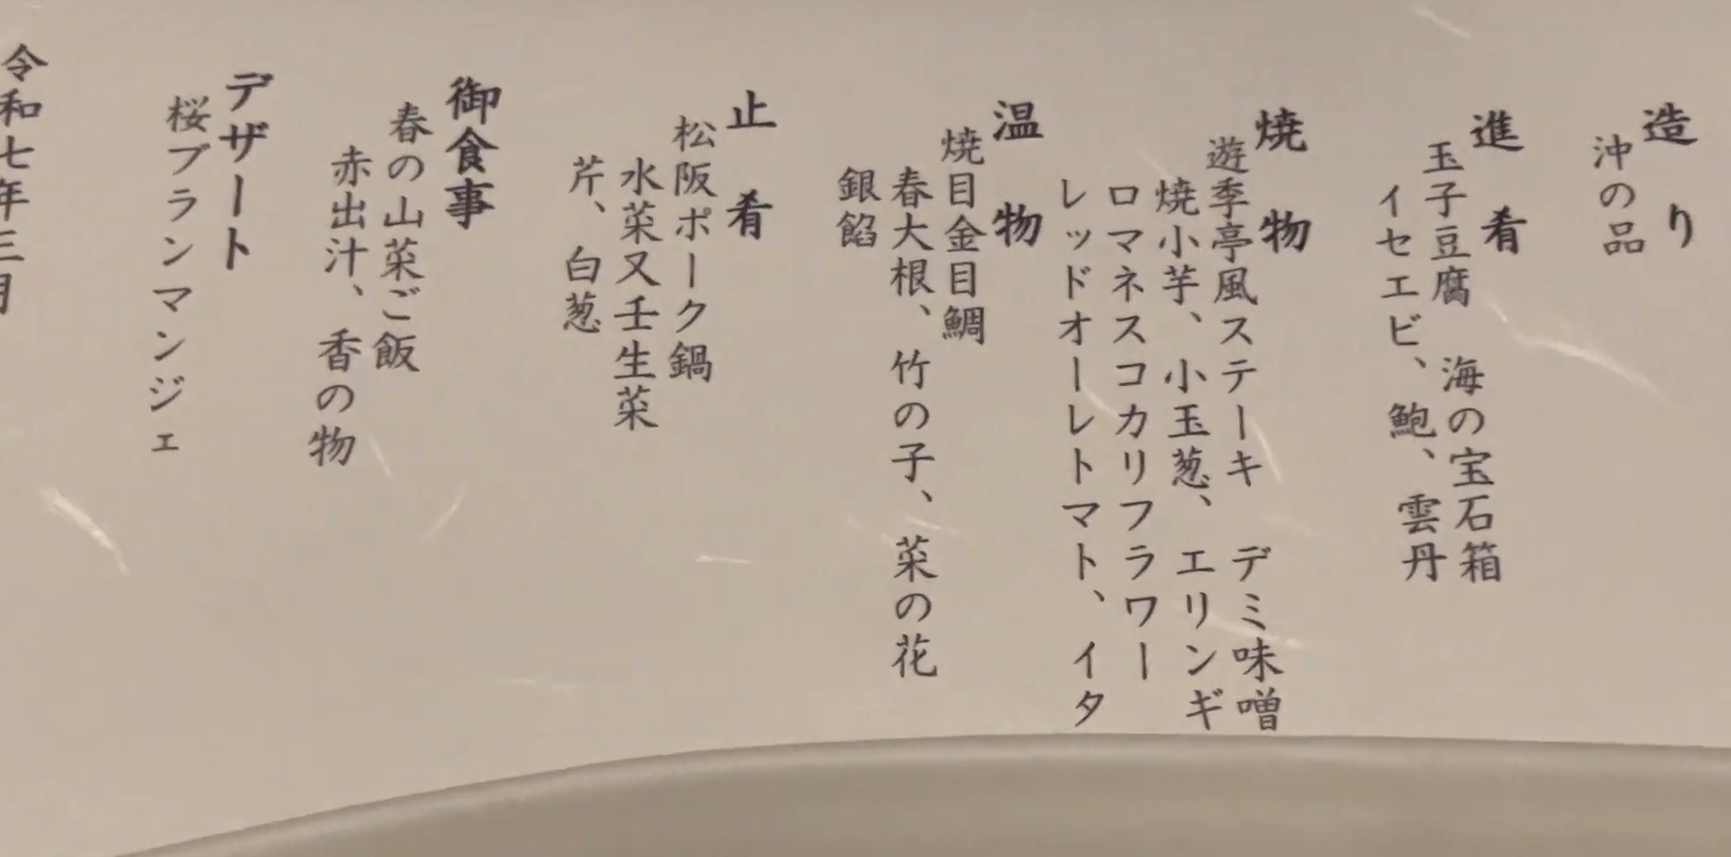 造り
沖の品
進肴
玉子豆腐　海の宝石箱
イセエビ、鮑、雲丹
焼物
遊季亭風ステーキ　デミ味噌
焼小芋、小玉葱、エリンギ
ロマネスコカリフラワー
レッドオーレトマト、イタ
温物
焼目金目鯛
春大根、竹の子、菜の花
銀餡
止肴
松阪ポーク鍋
水菜又壬生菜
芹、白葱
御食事
春の山菜ご飯
赤出汁、香の物
デザート
桜ブランマンジェ
令和七年三月